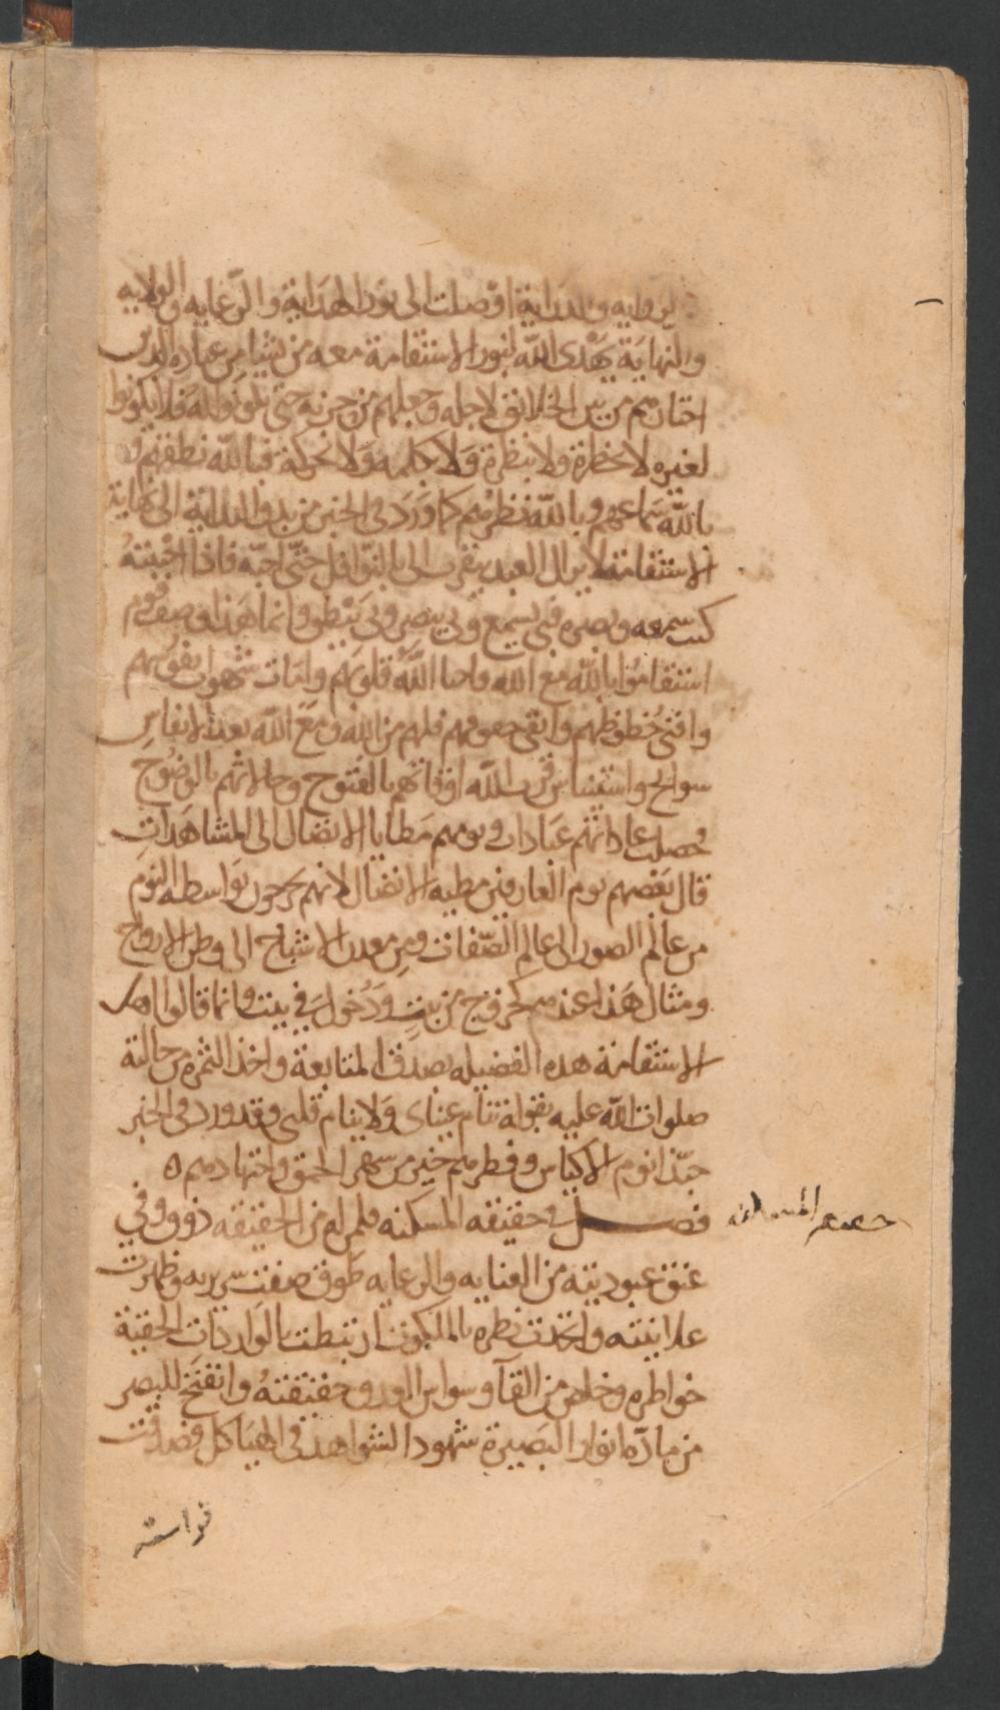 والبداية اوصلت الى نور الهداية والرعايه والولايه
والنهاية يهدى الله لنور الاستقامة معه من يشا من عباده الذين
اختارهم من بين الخلائق لاجله وجعلهم من حزبه حتى يكونوا له فلا يكونوا
لغيره لا بخطرة ولا بنظرة ولا بكلمه ولا بحركة فبالله نطقهم و
بالله سماعهم وبالله نظرهم كما ورد فى الخبر من بدو البداية الى نهاية
الاستقامة لا يزال العبد يتقرب الى بالنوافل حتى احبه فاذا احببته
كنت سمعه وبصره فبى يسمع وبى يبصر وبى ينطق وانما هذا وصف قوم
استقاموا بالله مع الله فاحيا الله قلوبهم وامات شهوات نفوسهم
وافنى حظوظهم وابقى حقوقهم فلهم من الله ومع الله بعدد الانفاس
سوانح واستيناس قرب الله اوقاتهم بالفتوح وحالاتهم بالوضوح
فحصلت عاداتهم عبادات ونومهم مطايا الاتصال الى المشاهدات
قال بعضهم نوم العارفين مطية الاتصال لانهم يخرجون بواسطه النوم
من عالم الصور الى عالم الصفات ومن معدن الاشباح الى وطن الارواح
ومثال هذا عندهم كخروج من بيت ودخول فى بيت وانما قالوا اهل
الاستقامة هذه الفضيله بصدق المتابعة واخذ الثمره من حالته
صلوات الله عليه بقوله تنام عيناى ولا ينام قلبى وقد ورد فى الخبر
حبذا نوم الاكياس وفطرهم خير من سهر الحمقى واجتهادهم ه
فصــل فى حقيقه المسكنه فلمن ام من الحقيقه ذوق وفى
عنق عبوديته من العنايه والرعايه طوق صفت سريرته وظهرت
علانيته واتحدت نظره بالملكوت ارتبطت بالواردات الحقية
خواطره وخلص من القآ وسواس العدو حقيقته وانفتح للبصر
من مادة انوار البصيرة شهود الشواهد فى الهياكل وصدقت
فراسته